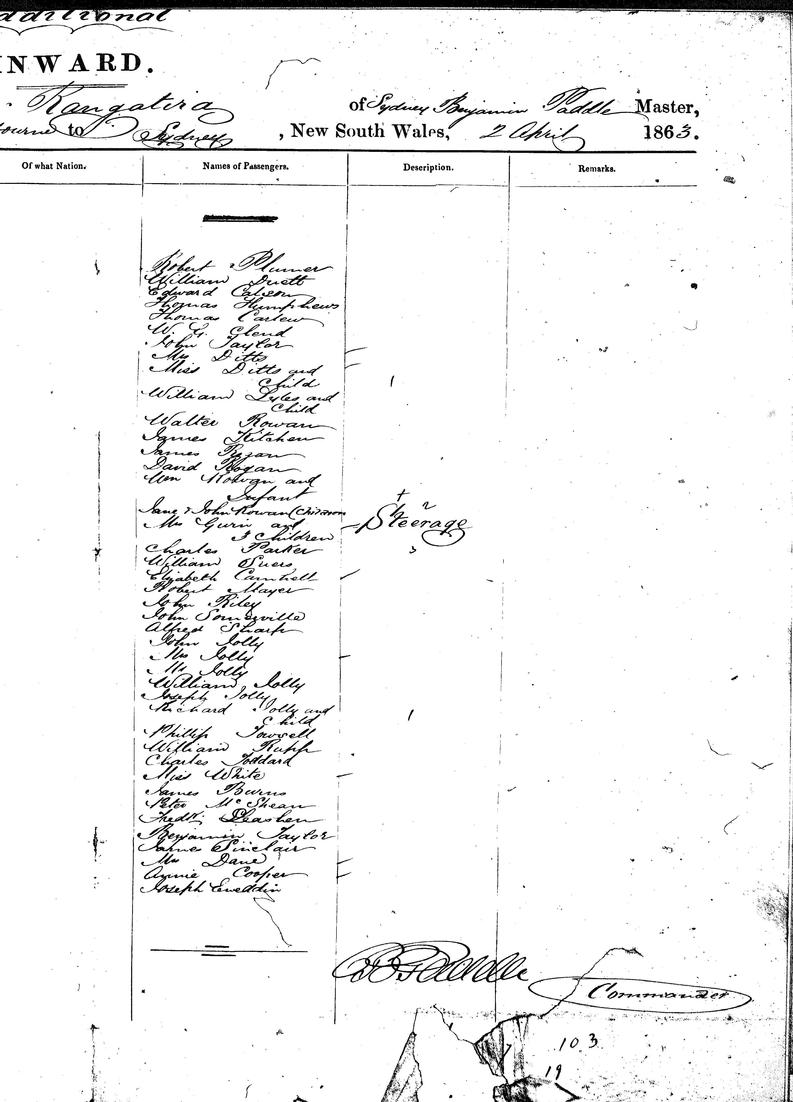 dditional
INWARD.
Rangatira of Sydney Benjamin Paddle Master,
ourne to Sydney, New South Wales, 2 April 1863.
Of what Nation. Names of Passengers. Description. Remarks.
Robert Plumer
William Duett
Edward
Thomas Humphews
Thomas Carlew
W. G. Glend
John Taylor
Mrs Ditto
Miss Ditto and
Child
William Lyles and
Child
Walter Rowan
James Kitchen
James Rogan
David Hogan
Wm Rowan and
Infant
Jane & John Rowan (Children
Mrs Gurin and Steerage
3 Children
Charles Parker
William Suers
Elizabeth Camhell
Robert Mayer
John Riley
John Somerville
Alfred Sharp
John Jolly
Mrs Jolly
Mr Jolly
William Jolly
Joseph Jolly
Richard Jolly and
Child
Phillip Towsell
William Rupp
Charles Toddard
Miss White
James Burns
Peter McShean
Fredk.
Benjamin Taylor
James Sinclair
Mrs Dane
Annie Cooper
Joseph
B Paddle
Commander
103
19